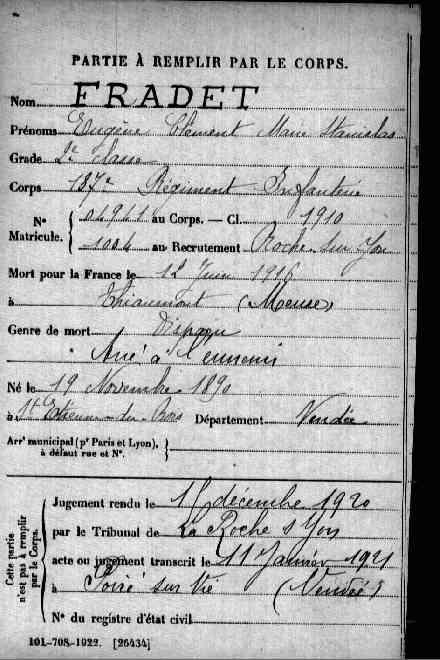 PARTIE À REMPLIR PAR LE CORPS.
Nom FRADET
Prénoms Eugène Clément Marie Stanislas
Grade 2e classe
Corps 137e Régiment Infanterie
N° Matricule. { 04941 au Corps. — Cl. 1910
1004 au Recrutement Roche sur Yon
Mort pour la France le 12 Juin 1916
à Thiaumont (Meuse)
Genre de mort Disparu
Tué à l'ennemi
Né le 19 Novembre 1890
à St Etienne-du-Bois Département Vendée
Arrt municipal (pr Paris et Lyon), à défaut rue et N°. }
Cette partie n'est pas à remplir par le Corps.
Jugement rendu le décembre 1920
par le Tribunal de La Roche s Yon
acte ou jugement transcrit le 11 Janvier 1921
à Poiré sur Vie (Vendée)
N° du registre d'état civil
101-708-1922. [26434]